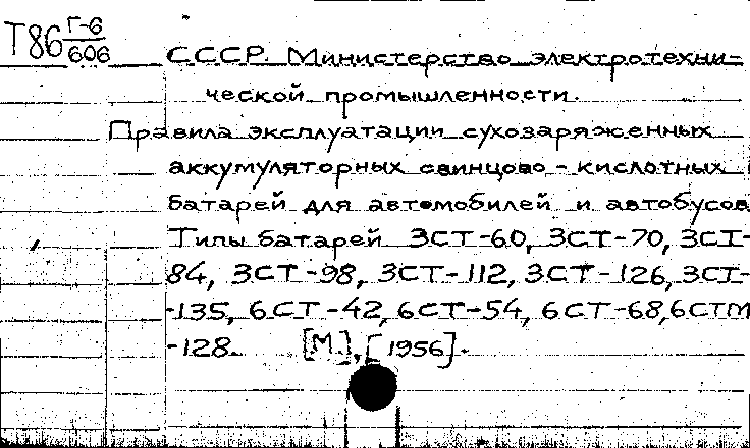 Т86 Г-6/606
СССР. Министерство электротехни-
ческой промышленности.
Правила эксплуатации сухозаряженных
аккумуляторных свинцово-кислотных
батарей для автомобилей и автобусов
Типы батарей 3СТ-60, 3СТ-70, 3СТ-
84, 3СТ-98, 3СТ-112, 3СТ-126, 3СТ-
-135, 6СТ-42, 6СТ-54, 6СТ-68, 6СТМ
-128. [М.], [1956].